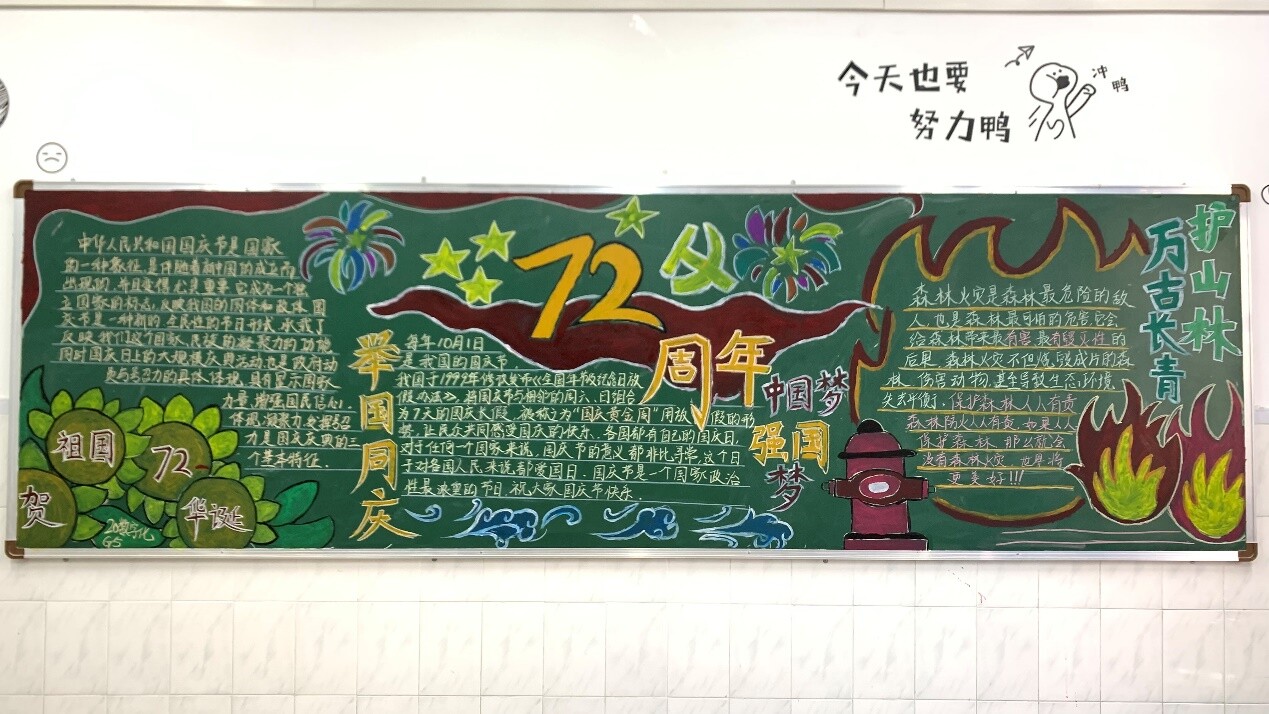 今天也要
努力鸭
冲
鸭
中华人民共和国国庆节是国家
的一种象征,是伴随着新中国的成立而
出现的,并且变得尤其重要.它成为一个独
立国家的标志,反映我国的国体和政体.国
庆节是一种新的、全民性的节日形式,承载了
反映我们这个国家、民族的凝聚力的功能
同时国庆日上的大规模庆典活动也是政府动
员与号召力的具体体现,具有显示国家
力量、增强国民信心,
体现凝聚力,发挥号召
力是国庆庆典的三
个基本特征.
祖国
72
贺
华诞
G5
举国同庆
72
周年
每年10月1日
是我国的国庆节
我国于1999年修改发布《全国年节及纪念日放
假办法》,将国庆节与相邻的周六、日组合
为7天的国庆长假,被称之为"国庆黄金周"用放假的形
势,让民众共同感受国庆的快乐.各国都有自己的国庆日,
对于任何一个国家来说,国庆节的意义都非比寻常.这个日
于对各国人民来说都爱国日.国庆节是一个国家政治
性最浓里的节日.祝大家国庆节快乐.
中国梦
强国
梦
护山林
万古长青
森林火灾是森林最危险的敌
人,也是森林最可怕的危害,它会
给森林带来最有害,最有毁灭性的
后果.森林火灾不但烧毁成片的森
林,伤害动物,更车导致生态环境
失去平衡.保护森林人人有责
森林防火人人有责,如果人人
保护森林,那么就会
没有森林火灾,也具将
更美好!!!